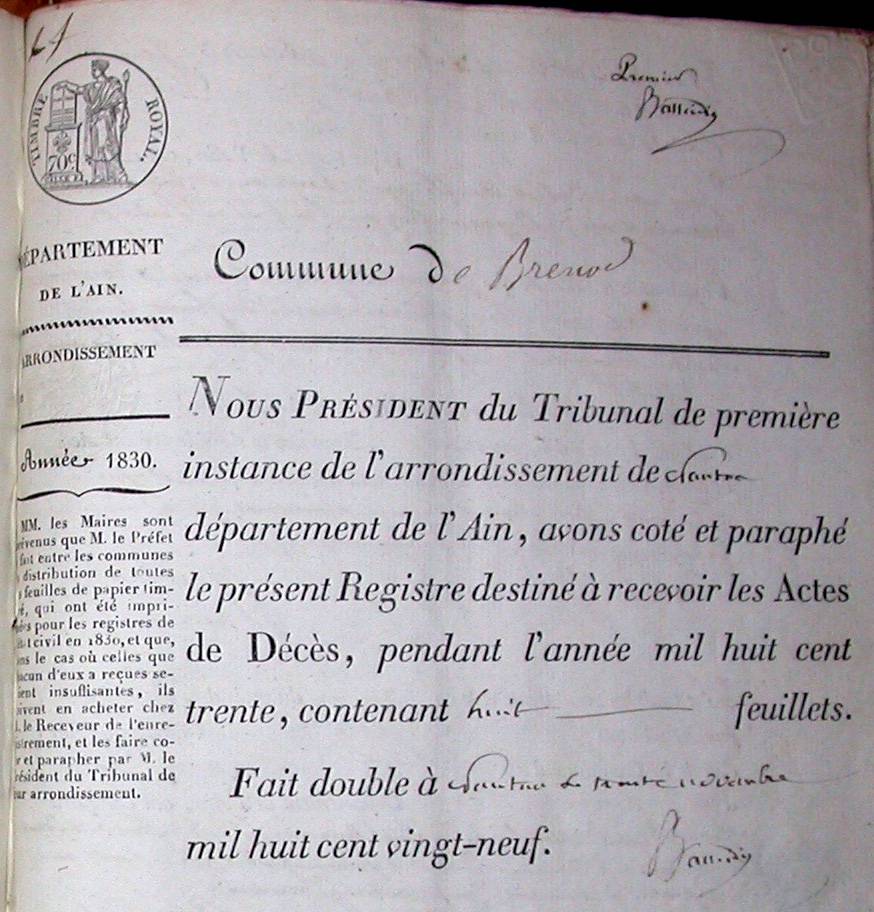 TIMBRE ROYAL.
70c
Premier
Commune de Brenod
DÉPARTEMENT
DE L'AIN.
ARRONDISSEMENT
Année 1830.
MM. les Maires sont
prévenus que M. le Préfet
fait entre les communes
distribution de toutes
feuilles de papier tim-
bré, qui ont été impri-
mées pour les registres de
état civil en 1830, et que,
dans le cas où celles que
chacun d'eux a reçues se-
raient insuffisantes, ils
doivent en acheter chez
M. le Receveur de l'enre-
gistrement, et les faire co-
ter et parapher par M. le
Président du Tribunal de
leur arrondissement.
NOUS PRÉSIDENT du Tribunal de première
instance de l'arrondissement de Nantua
département de l'Ain, avons coté et paraphé
le présent Registre destiné à recevoir les Actes
de Décès, pendant l'année mil huit cent
trente, contenant huit feuillets.
Fait double à Nantua le trente novembre
mil huit cent vingt-neuf.